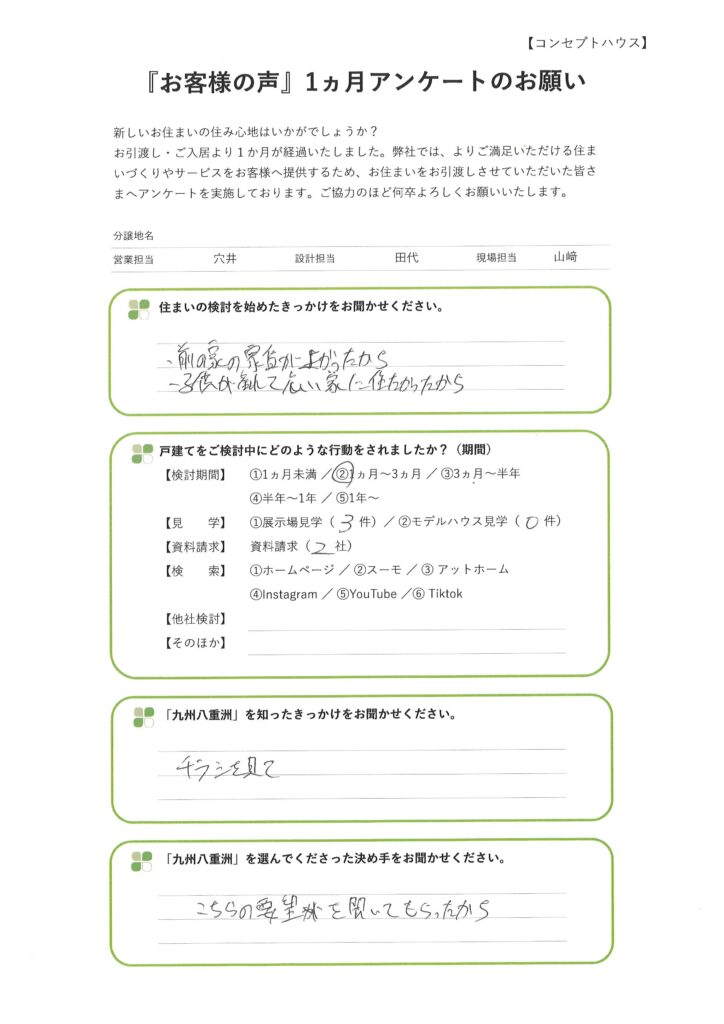 【コンセプトハウス】
『お客様の声』1ヵ月アンケートのお願い
新しいお住まいの住み心地はいかがでしょうか？
お引渡し・ご入居より１か月が経過いたしました。弊社では、よりご満足いただける住ま
いづくりやサービスをお客様へ提供するため、お住まいをお引渡しさせていただいた皆さ
まへアンケートを実施しております。ご協力のほど何卒よろしくお願いいたします。
分譲地名
営業担当 穴井 設計担当 田代 現場担当 山﨑
住まいの検討を始めたきっかけをお聞かせください。
・前の家の家賃が よかったから
・子供が 広い家に住たかったから
戸建てをご検討中にどのような行動をされましたか？（期間）
【検討期間】 ①1ヵ月未満 ／ ②1ヵ月〜3ヵ月 ／ ③3ヵ月〜半年
④半年〜1年 ／ ⑤1年〜
【見　学】 ①展示場見学（ 3 件）／ ②モデルハウス見学（ 0 件）
【資料請求】 資料請求（ 2 社）
【検　索】 ①ホームページ ／ ②スーモ ／ ③ アットホーム
④Instagram ／ ⑤YouTube ／⑥ Tiktok
【他社検討】
【そのほか】
「九州八重洲」を知ったきっかけをお聞かせください。
チラシを見て
「九州八重洲」を選んでくださった決め手をお聞かせください。
こちらの要望 を聞いてもらったから